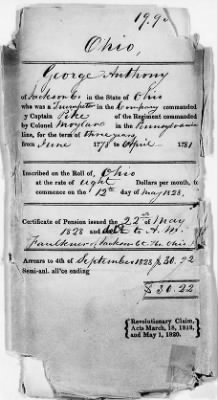 19.9
Ohio,
George Anthony
of Jackson Co in the State of Ohio
who was a Trumpeter in the Company commanded
y Captain Pike of the Regiment commanded
by Colonel Moyland in the Pennsylvania
line, for the term of three years
from June 1778 to April 1781
Inscribed on the Roll of Ohio
at the rate of eight Dollars per month, to
commence on the 12th day of May 1828.
Certificate of Pension issued the 22nd of May
1828 and del to A. M.
Faulkner, Jackson Co. Ohio
Arrears to 4th of September 1828 $30.22
Semi-anl. all'ce ending
$30.22
Revolutionary Claim,
Acts March, 18, 1818,
and May 1, 1820.